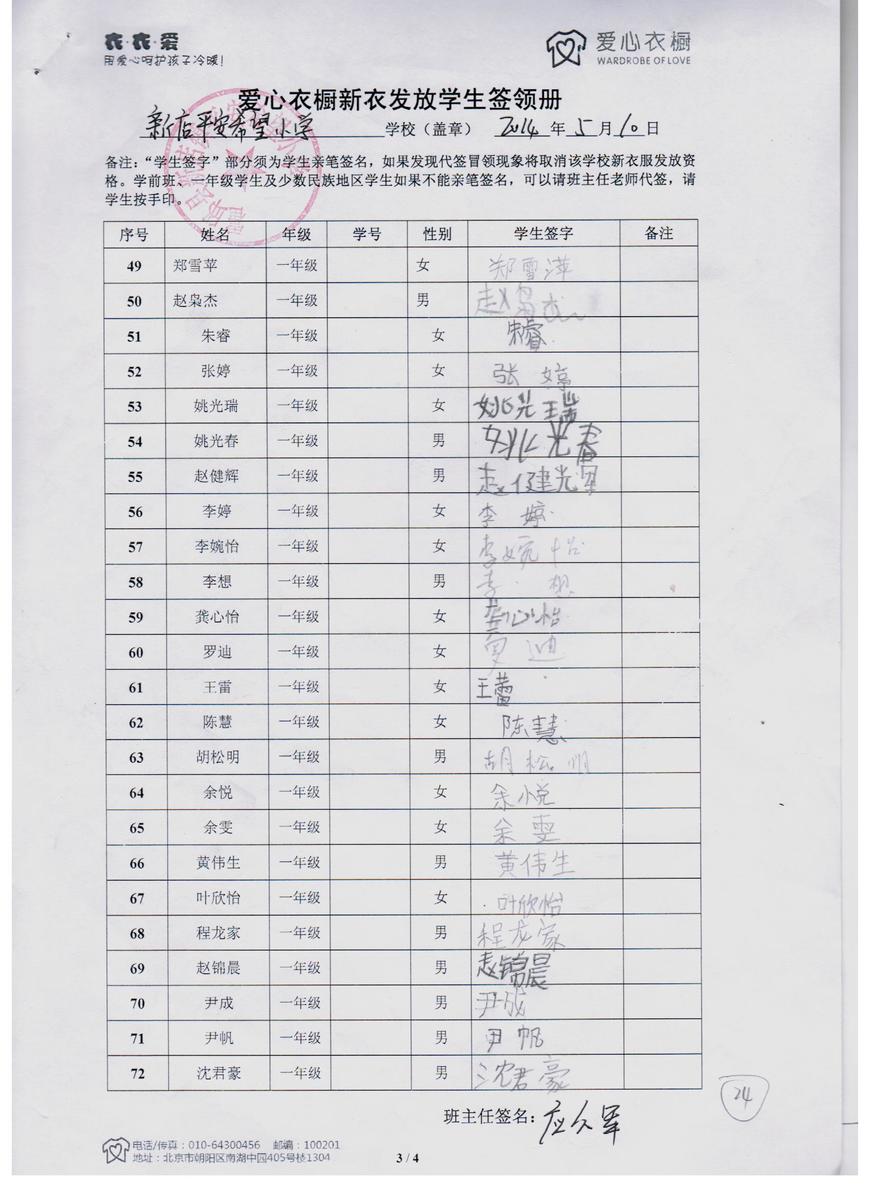 衣·衣·爱
用爱心呵护孩子冷暖!
爱心衣橱
WARDROBE OF LOVE
爱心衣橱新衣发放学生签领册
新店平安希望小学 学校（盖章） 2014 年 5 月 10 日
备注：“学生签字”部分须为学生亲笔签名，如果发现代签冒领现象将取消该学校新衣服发放资
格。学前班、一年级学生及少数民族地区学生如果不能亲笔签名，可以请班主任老师代签，请
学生按手印。
序号 姓名 年级 学号 性别 学生签字 备注
49 郑雪苹 一年级 女 郑雪萍
50 赵枭杰 一年级 男 赵枭杰
51 朱睿 一年级 女 朱睿
52 张婷 一年级 女 张婷
53 姚光瑞 一年级 女 姚光瑞
54 姚光春 一年级 男 姚光春
55 赵健辉 一年级 男 赵健辉
56 李婷 一年级 女 李婷
57 李婉怡 一年级 女 李婉怡
58 李想 一年级 男 李想
59 龚心怡 一年级 女 龚心怡
60 罗迪 一年级 女 罗迪
61 王雷 一年级 女 王蕾
62 陈慧 一年级 女 陈慧
63 胡松明 一年级 男 胡松明
64 余悦 一年级 女 余悦
65 余雯 一年级 女 余雯
66 黄伟生 一年级 男 黄伟生
67 叶欣怡 一年级 女 叶欣怡
68 程龙家 一年级 男 程龙家
69 赵锦晨 一年级 男 赵锦晨
70 尹成 一年级 男 尹成
71 尹帆 一年级 男 尹帆
72 沈君豪 一年级 男 沈君豪
24
班主任签名：
电话/传真：010-64300456 邮编：100201
地址：北京市朝阳区南湖中园405号楼1304
3 / 4